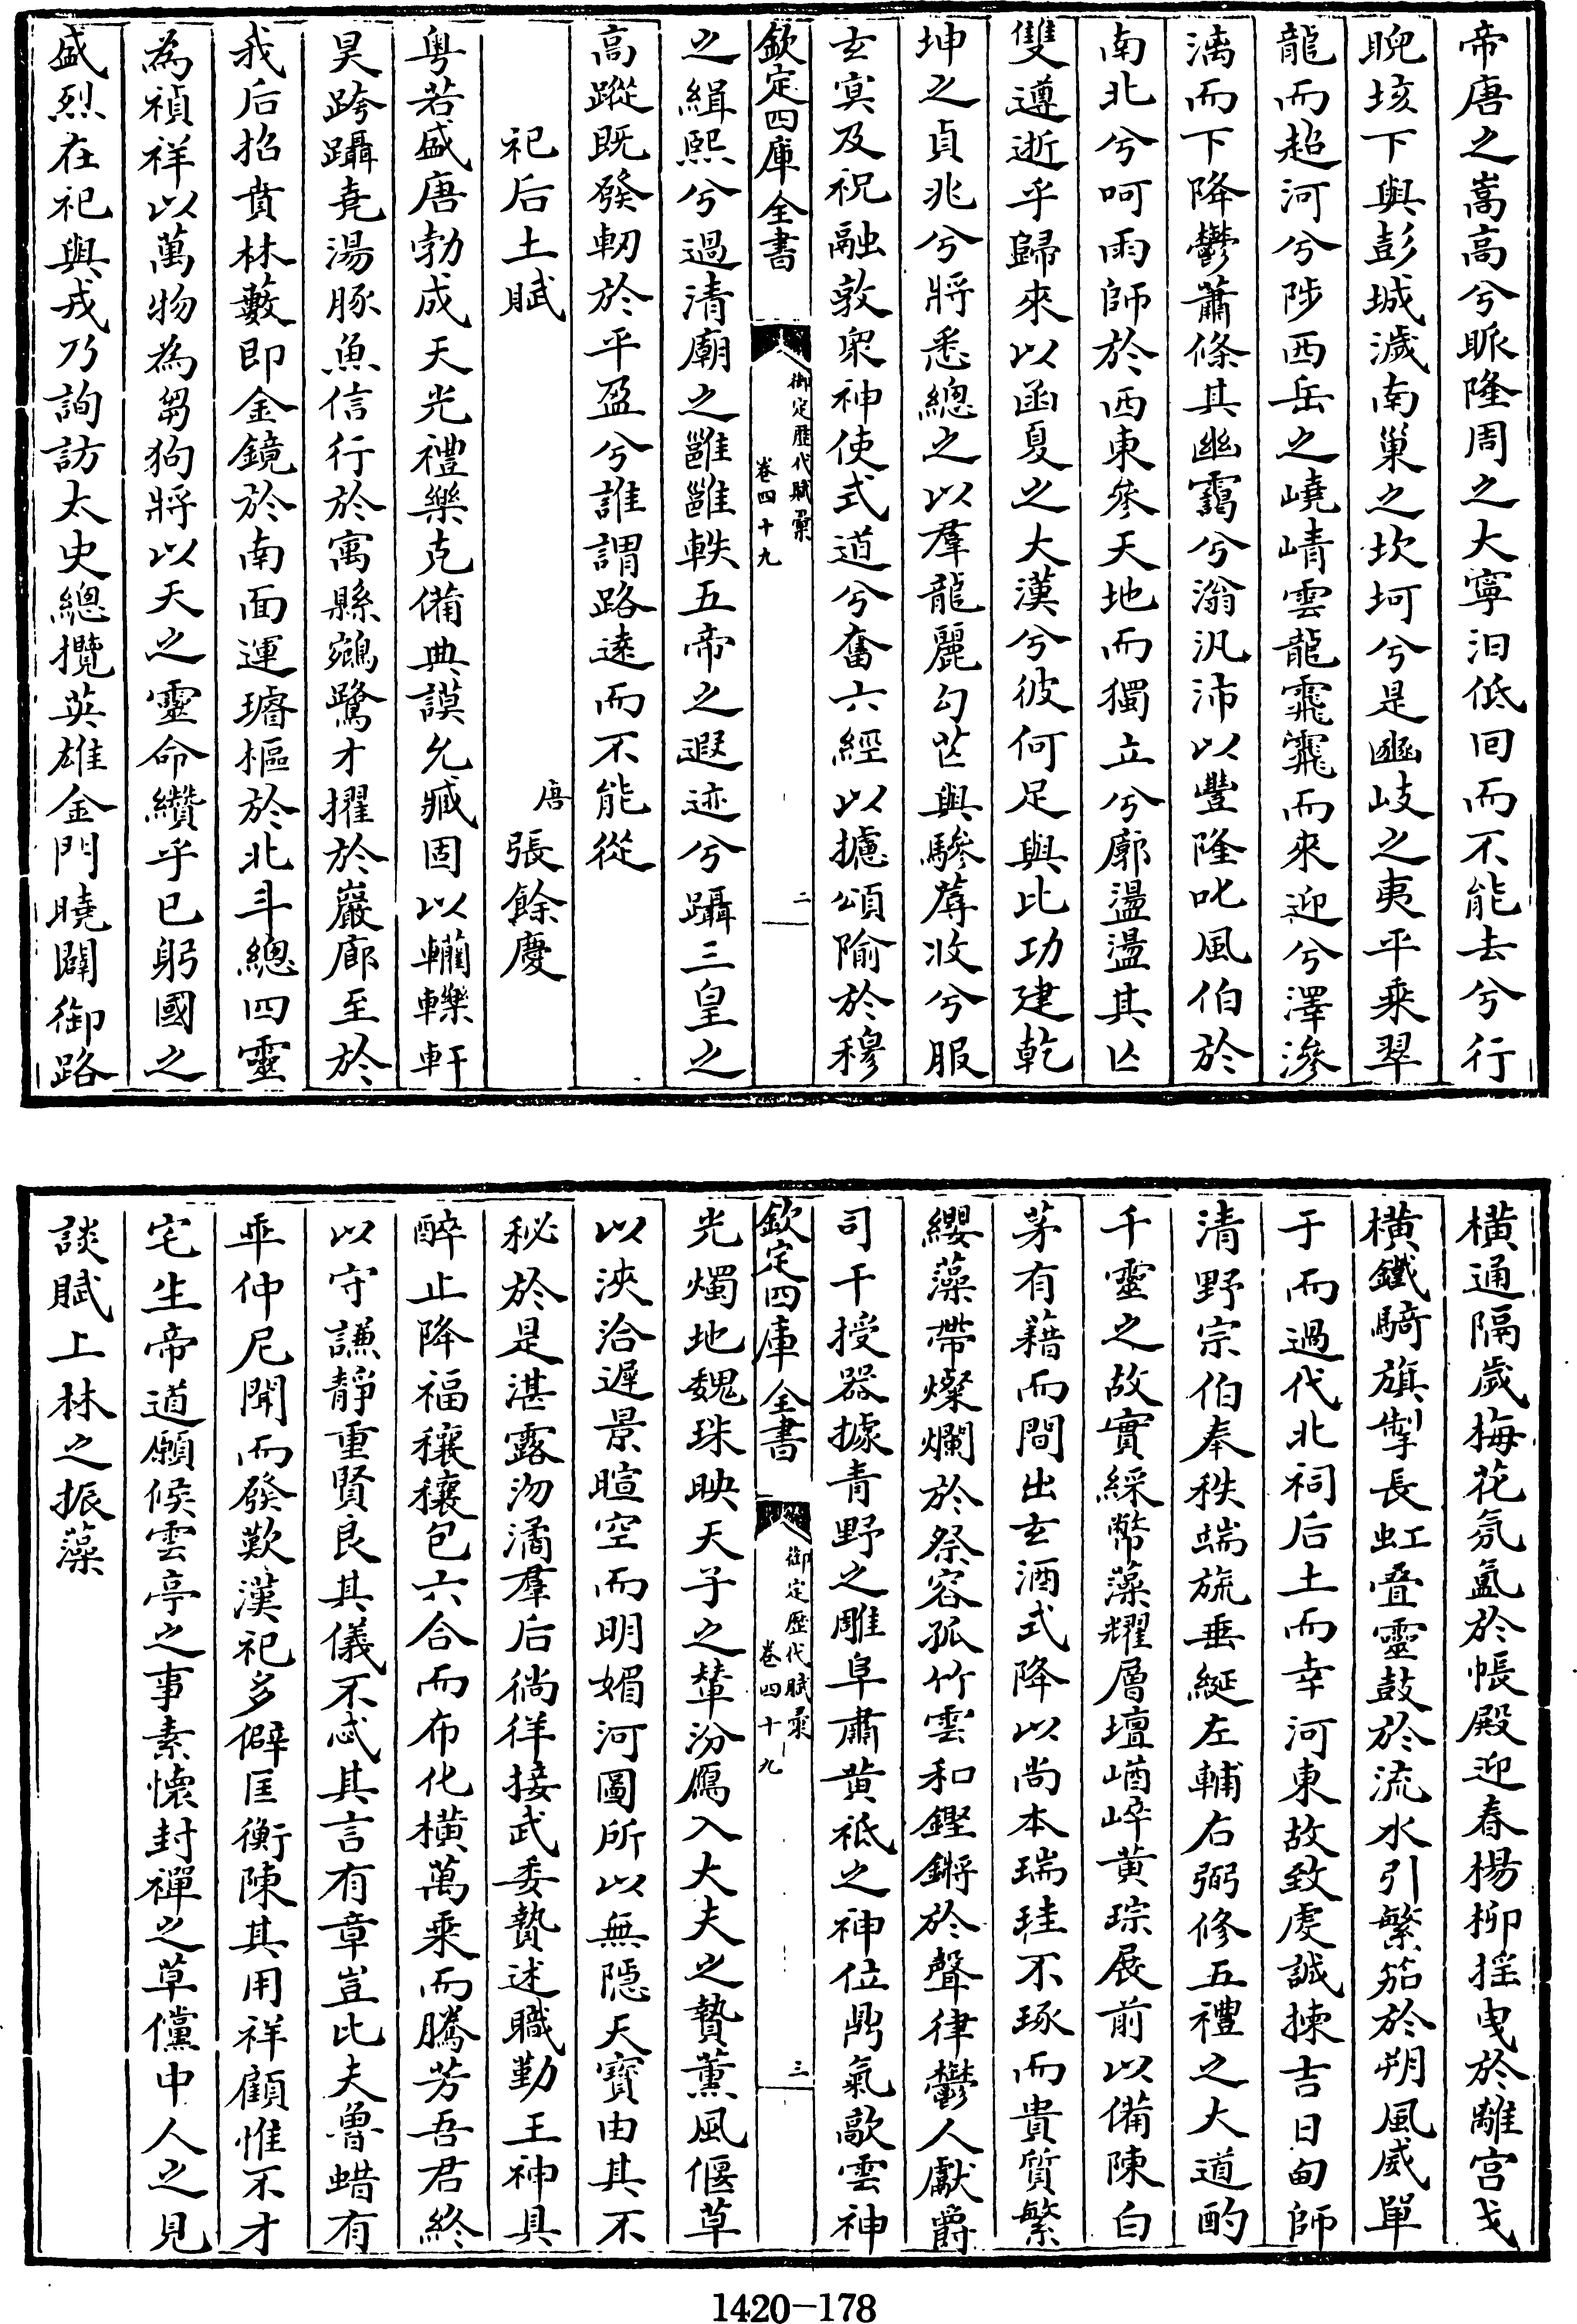 帝唐之嵩高兮眽隆周之大寧汨低回而不能去兮行
睨垓下與彭城濊南巢之坎坷兮是豳岐之夷平乘翠
龍而超河兮陟西岳之嶢崝雲龍霏霏而來迎兮澤滲
漓而下降鬱蕭條其幽靄兮滃汎沛以豐隆叱風伯於
南北兮呵雨師於西東參天地而獨立兮廓盪盪其亡
雙遵逝乎歸來以函夏之大漢兮彼何足與比功建乾
坤之貞兆兮將悉總之以羣龍麗勾芒與驂蓐收兮服
玄冥及祝融敦衆神使式道兮奮六經以攄頌隃於穆
欽定四庫全書
御定歷代賦彙
卷四十九
二
之緝熙兮過清廟之雝雝軼五帝之遐迹兮躡三皇之
高蹤既發軔於平盈兮誰謂路遠而不能從
祀后土賦
唐張餘慶
粤若盛唐勃成天光禮樂克備典謨允臧固以轥轢軒
昊跨躡堯湯豚魚信行於寓縣鵷鷺才擢於巖廊至於
我后招賁林藪即金鏡於南面運璿樞於北斗總四靈
為禎祥以萬物為芻狗將以天之靈命纘乎已躬國之
盛烈在祀與戎乃詢訪太史總攬英雄金門曉闢御路
橫通隔歲梅花氛氳於帳殿迎春楊柳揺曵於離宮戈
橫鐵騎旗掣長虹疊靈鼓於流水引繁笳於朔風威單
于而過代北祠后土而幸河東故致虔誠揀吉日甸師
清野宗伯奉秩端旒垂綖左輔右弼修五禮之大道酌
千靈之故實綵幣藻耀層壇崷崪黄琮展前以備陳白
茅有藉而間出玄酒式降以尚本瑞珪不琢而貴質繁
纓藻帶燦爛於祭容孤竹雲和鏗鏘於聲律鬱人獻爵
司干授器據青野之雕阜肅黄祗之神位鼎氣歊雲神
欽定四庫全書
御定歷代賦彙
卷四十九
三
光燭地魏珠映天子之輦汾鴈入大夫之贄薰風偃草
以浹洽遲景暄空而明媚河圖所以無隱天寶由其不
秘於是湛露沕潏羣后徜徉接武委贄述職勤王神具
醉止降福穰穰包六合而布化橫萬乘而騰芳吾君終
以守謙靜重賢良其儀不忒其言有章豈比夫魯蜡有
乖仲尼聞而發歎漢祀多僻匡衡陳其用祥顧惟不才
宅生帝道願候雲亭之事素懷封禪之草儻中人之見
談賦上林之振藻
1420-178